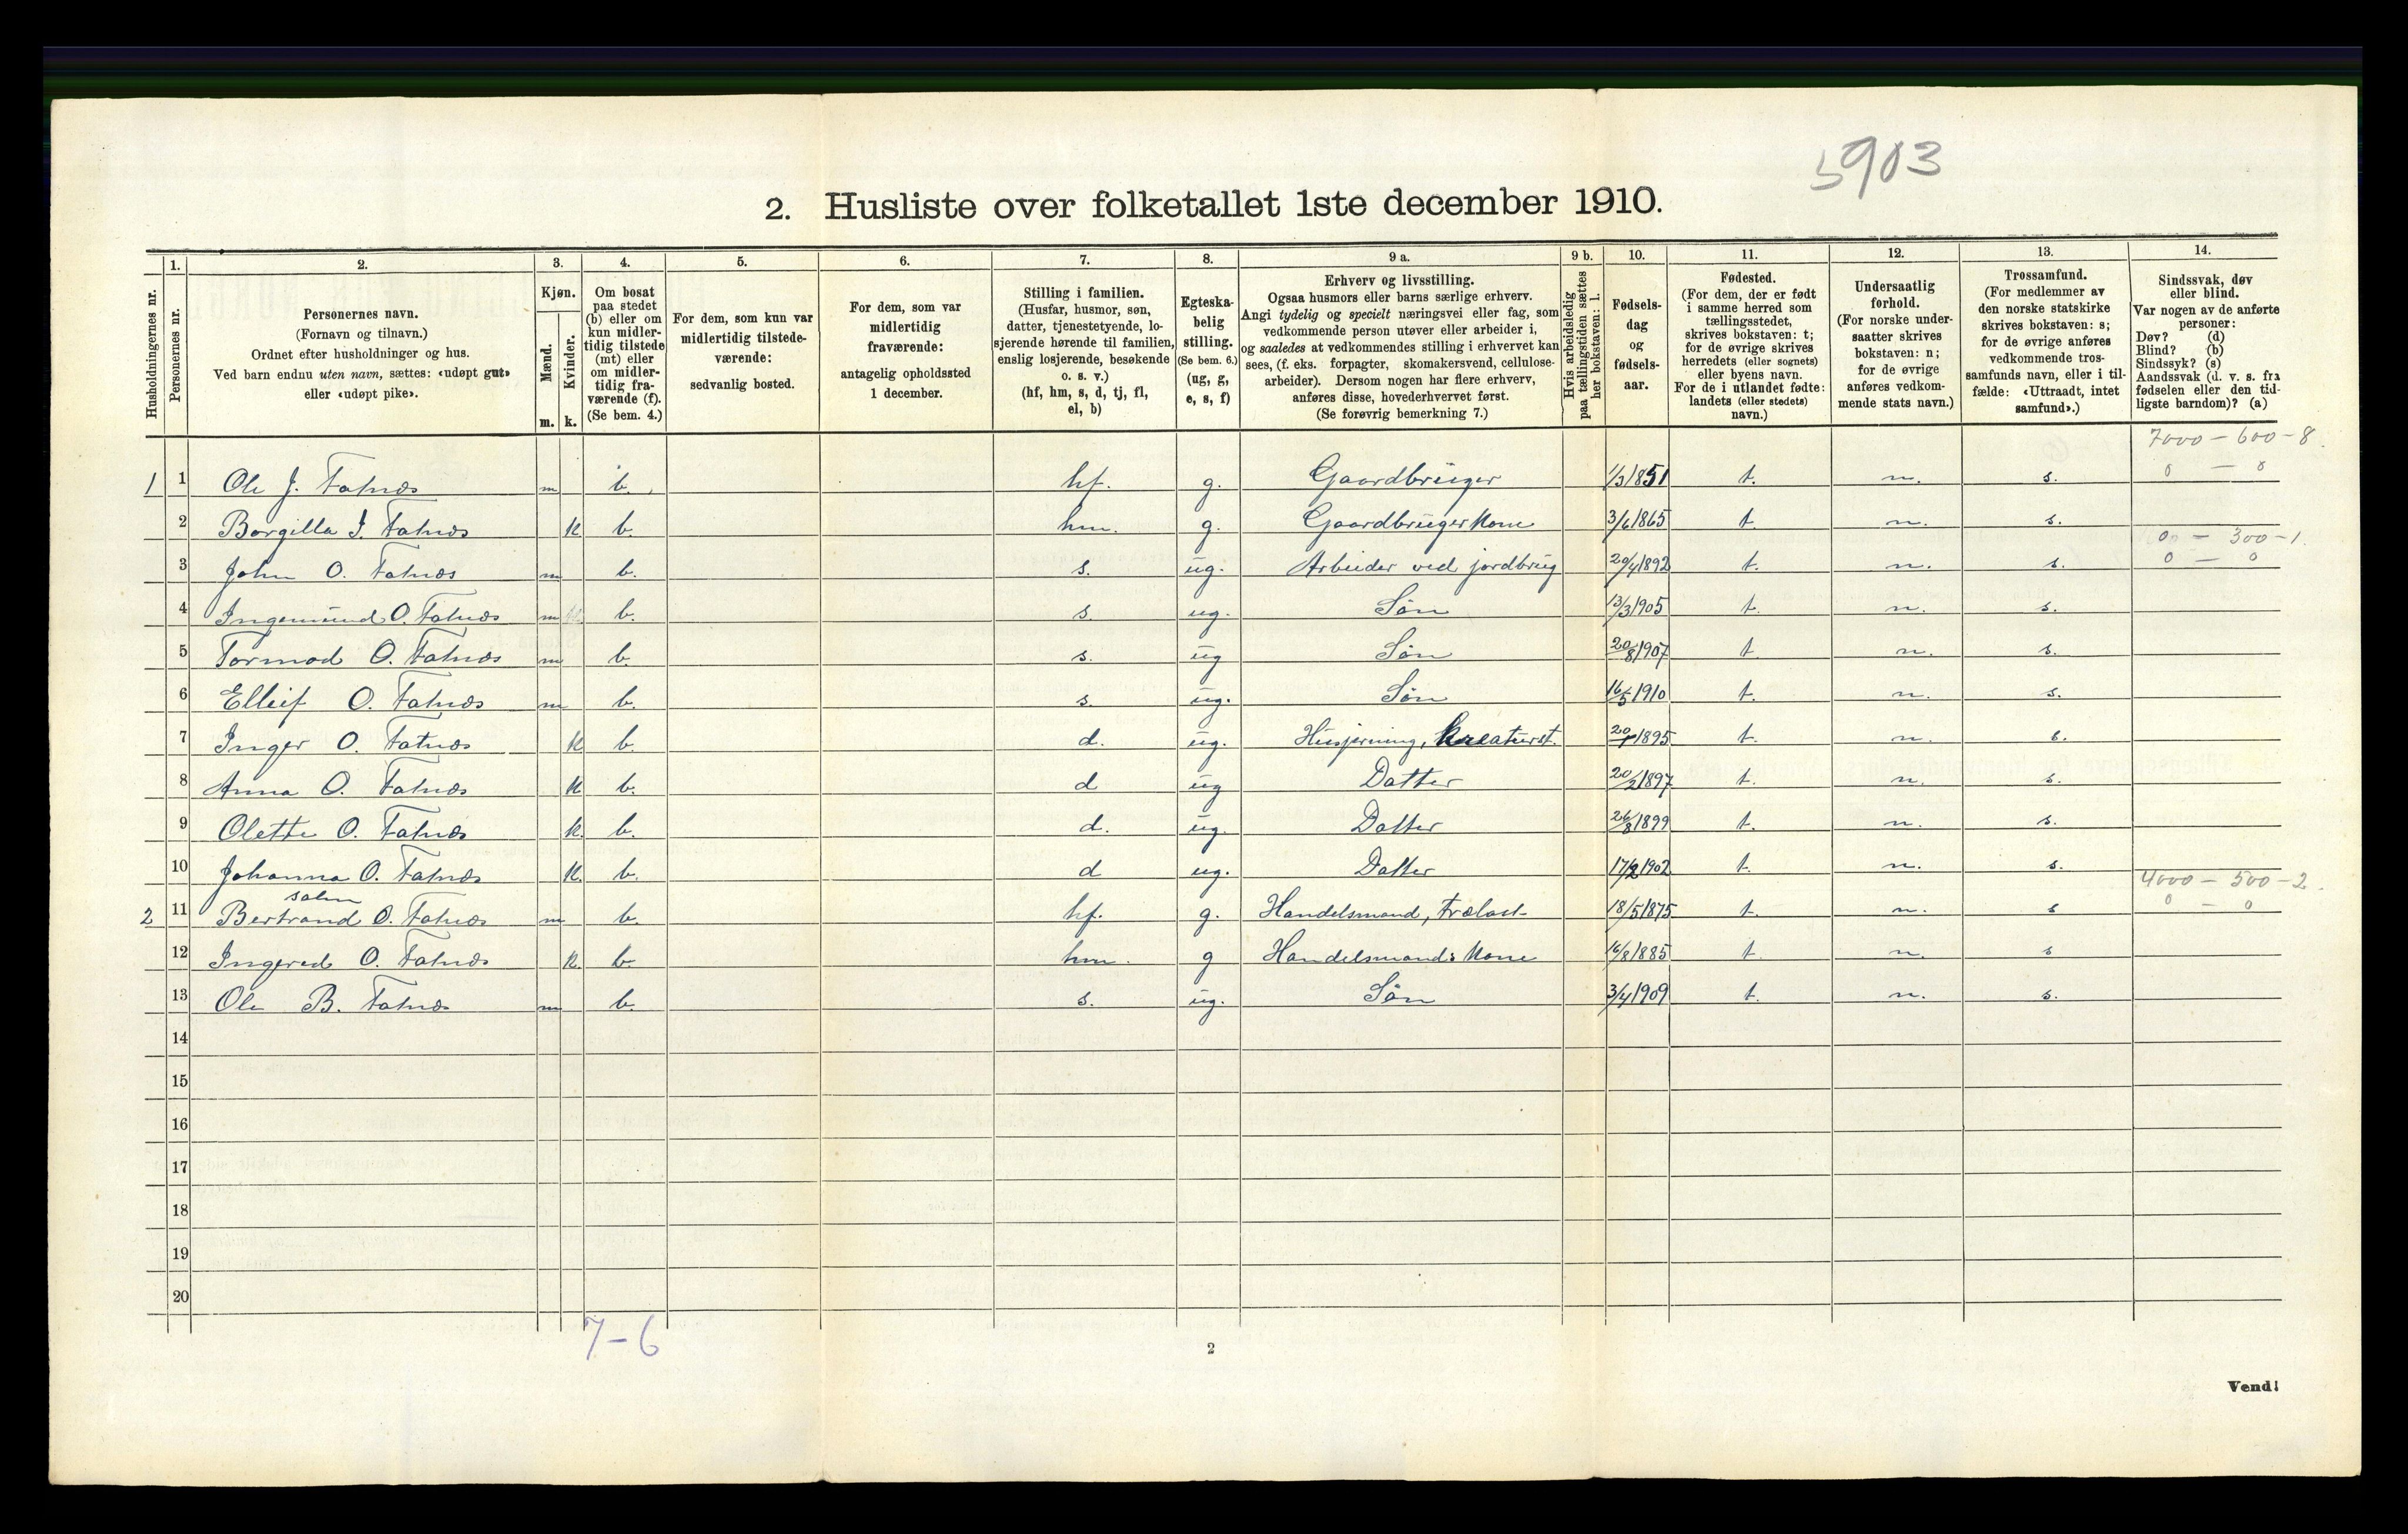 5903
2. Husliste over folketallet 1ste december 1910.
Husholdningernes nr.
1.
Personernes nr.
2.
Personernes navn.
(Fornavn og tilnavn.)
Ordnet efter husholdninger og hus.
Ved barn endnu uten navn, sættes: «udøpt gut»
eller «udøpt pike».
3.
Kjøn.
Mænd.
Kvinder.
m. k.
4.
Om bosat
paa stedet
(b) eller om
kun midler-
tidig tilstede
(mt) eller
om midler-
tidig fra-
værende (f).
(Se bem. 4.)
5.
For dem, som kun var
midlertidig tilstede-
værende:
sedvanlig bosted.
6.
For dem, som var
midlertidig
fraværende:
antagelig opholdssted
1 december.
7.
Stilling i familien.
(Husfar, husmor, søn,
datter, tjenestetyende, lo-
sjerende hørende til familien,
enslig losjerende, besøkende
o. s. v.)
(hf, hm, s, d, tj, fl,
el, b)
8.
Egteska-
belig
stilling.
(Se bem. 6.)
(ug, g,
e, s, f)
9 a.
Erhverv og livsstilling.
Ogsaa husmors eller barns særlige erhverv.
Angi tydelig og specielt næringsvei eller fag, som
vedkommende person utøver eller arbeider i,
og saaledes at vedkommendes stilling i erhvervet kan
sees, (f. eks. forpagter, skomakersvend, cellulose-
arbeider). Dersom nogen har flere erhverv,
anføres disse, hovederhvervet først.
(Se forøvrig bemerkning 7.)
9 b.
Hvis arbeidsledig
paa tællingstiden sættes
her bokstaven: l.
10.
Fødsels-
dag
og
fødsels-
aar.
11.
Fødested.
(For dem, der er født
i samme herred som
tællingsstedet,
skrives bokstaven: t;
for de øvrige skrives
herredets (eller sognets)
eller byens navn.
For de i utlandet fødte:
landets (eller stedets)
navn.)
12.
Undersaatlig
forhold.
(For norske under-
saatter skrives
bokstaven: n;
for de øvrige
anføres vedkom-
mende stats navn.)
13.
Trossamfund.
(For medlemmer av
den norske statskirke
skrives bokstaven: s;
for de øvrige anføres
vedkommende tros-
samfunds navn, eller i til-
fælde: «Uttraadt, intet
samfund».)
14.
Sindssvak, døv
eller blind.
Var nogen av de anførte
personer:
Døv? (d)
Blind? (b)
Sindssyk? (s)
Aandssvak (d. v. s. fra
fødselen eller den tid-
ligste barndom)? (a)
7000 - 600 - 8.
1 1 Ole J. Fatnæs m b. hf. g. Gaardbruger 1/3 1851 t. n. s. 0 - 0
2 Borgilla J. Fatnæs k b. hm. g. Gaardbruger kone 3/6 1865 t. n. s.
0 - 300 - 1.
3 John O. Fatnæs m b. s. ug. Arbeider ved jordbrug 20/4 1892 t. n. s. 0 - 0
4 Ingemund O. Fatnæs m b. s. ug. Søn 13/3 1905 t. n. s.
5 Tormod O. Fatnæs m b. s. ug Søn 20/8 1907 t. n. s.
6 Elleif O. Fatnæs m b. s. ug. Søn 16/5 1910 t. n. s.
7 Inger O. Fatnæs k b. d. ug. Husgjerning, kreaturst. 20/1 1895 t. n. s.
8 Anna O. Fatnæs k b. d ug Datter 20/2 1897 t. n. s.
9 Olette O. Fatnæs k. b. d. ug. Datter 26/8 1899 t. n. s.
10 Johanna O. Fatnæs k. b. d ug. Datter 17/2 1902 t. n. s.
4000 - 500 - 2.
2 11 Bertrand O. Fatnæs m b. hf. g. Handelsmand, trælast 18/5 1875 t. n. s 0 - 0
12 Ingered O. Fatnæs k. b. hm. g Handelsmands kone 16/8 1885 t. n. s
13 Ole B. Fatnæs m b. s. ug. Søn 3/4 1909 t. n. s.
14
15
16
17
18
19
20
7 - 6
2
Vend!